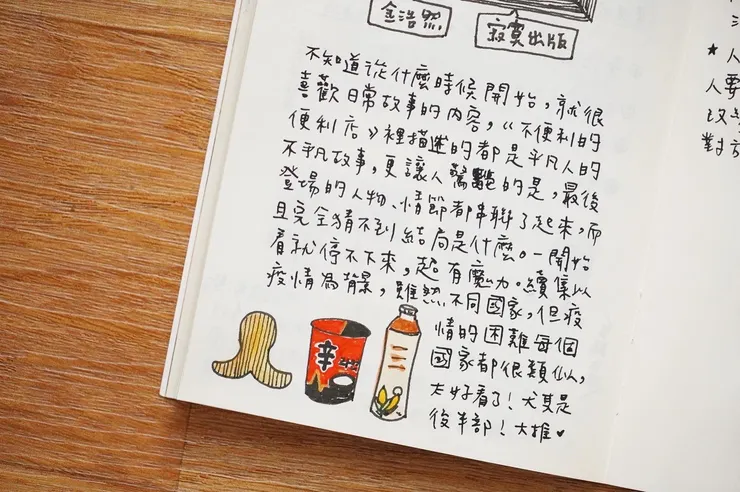 金浩然
寂寞出版
不知道從什麼時候開始，就很
喜歡日常故事的內容，《不便利的
便利店》裡描述的都是平凡人的
不凡故事，更讓人驚豔的是，最後
登場的人物、情節都串聯了起來，而
且完全猜不到結局是什麼。一開始
看就停不下來，超有魔力。續集以
疫情為背景，雖然不同國家，但疫
情的困難每個
國家都很類似，
太好看了！尤其是
後半部！大推♥
辛
★人
人要
改
對方